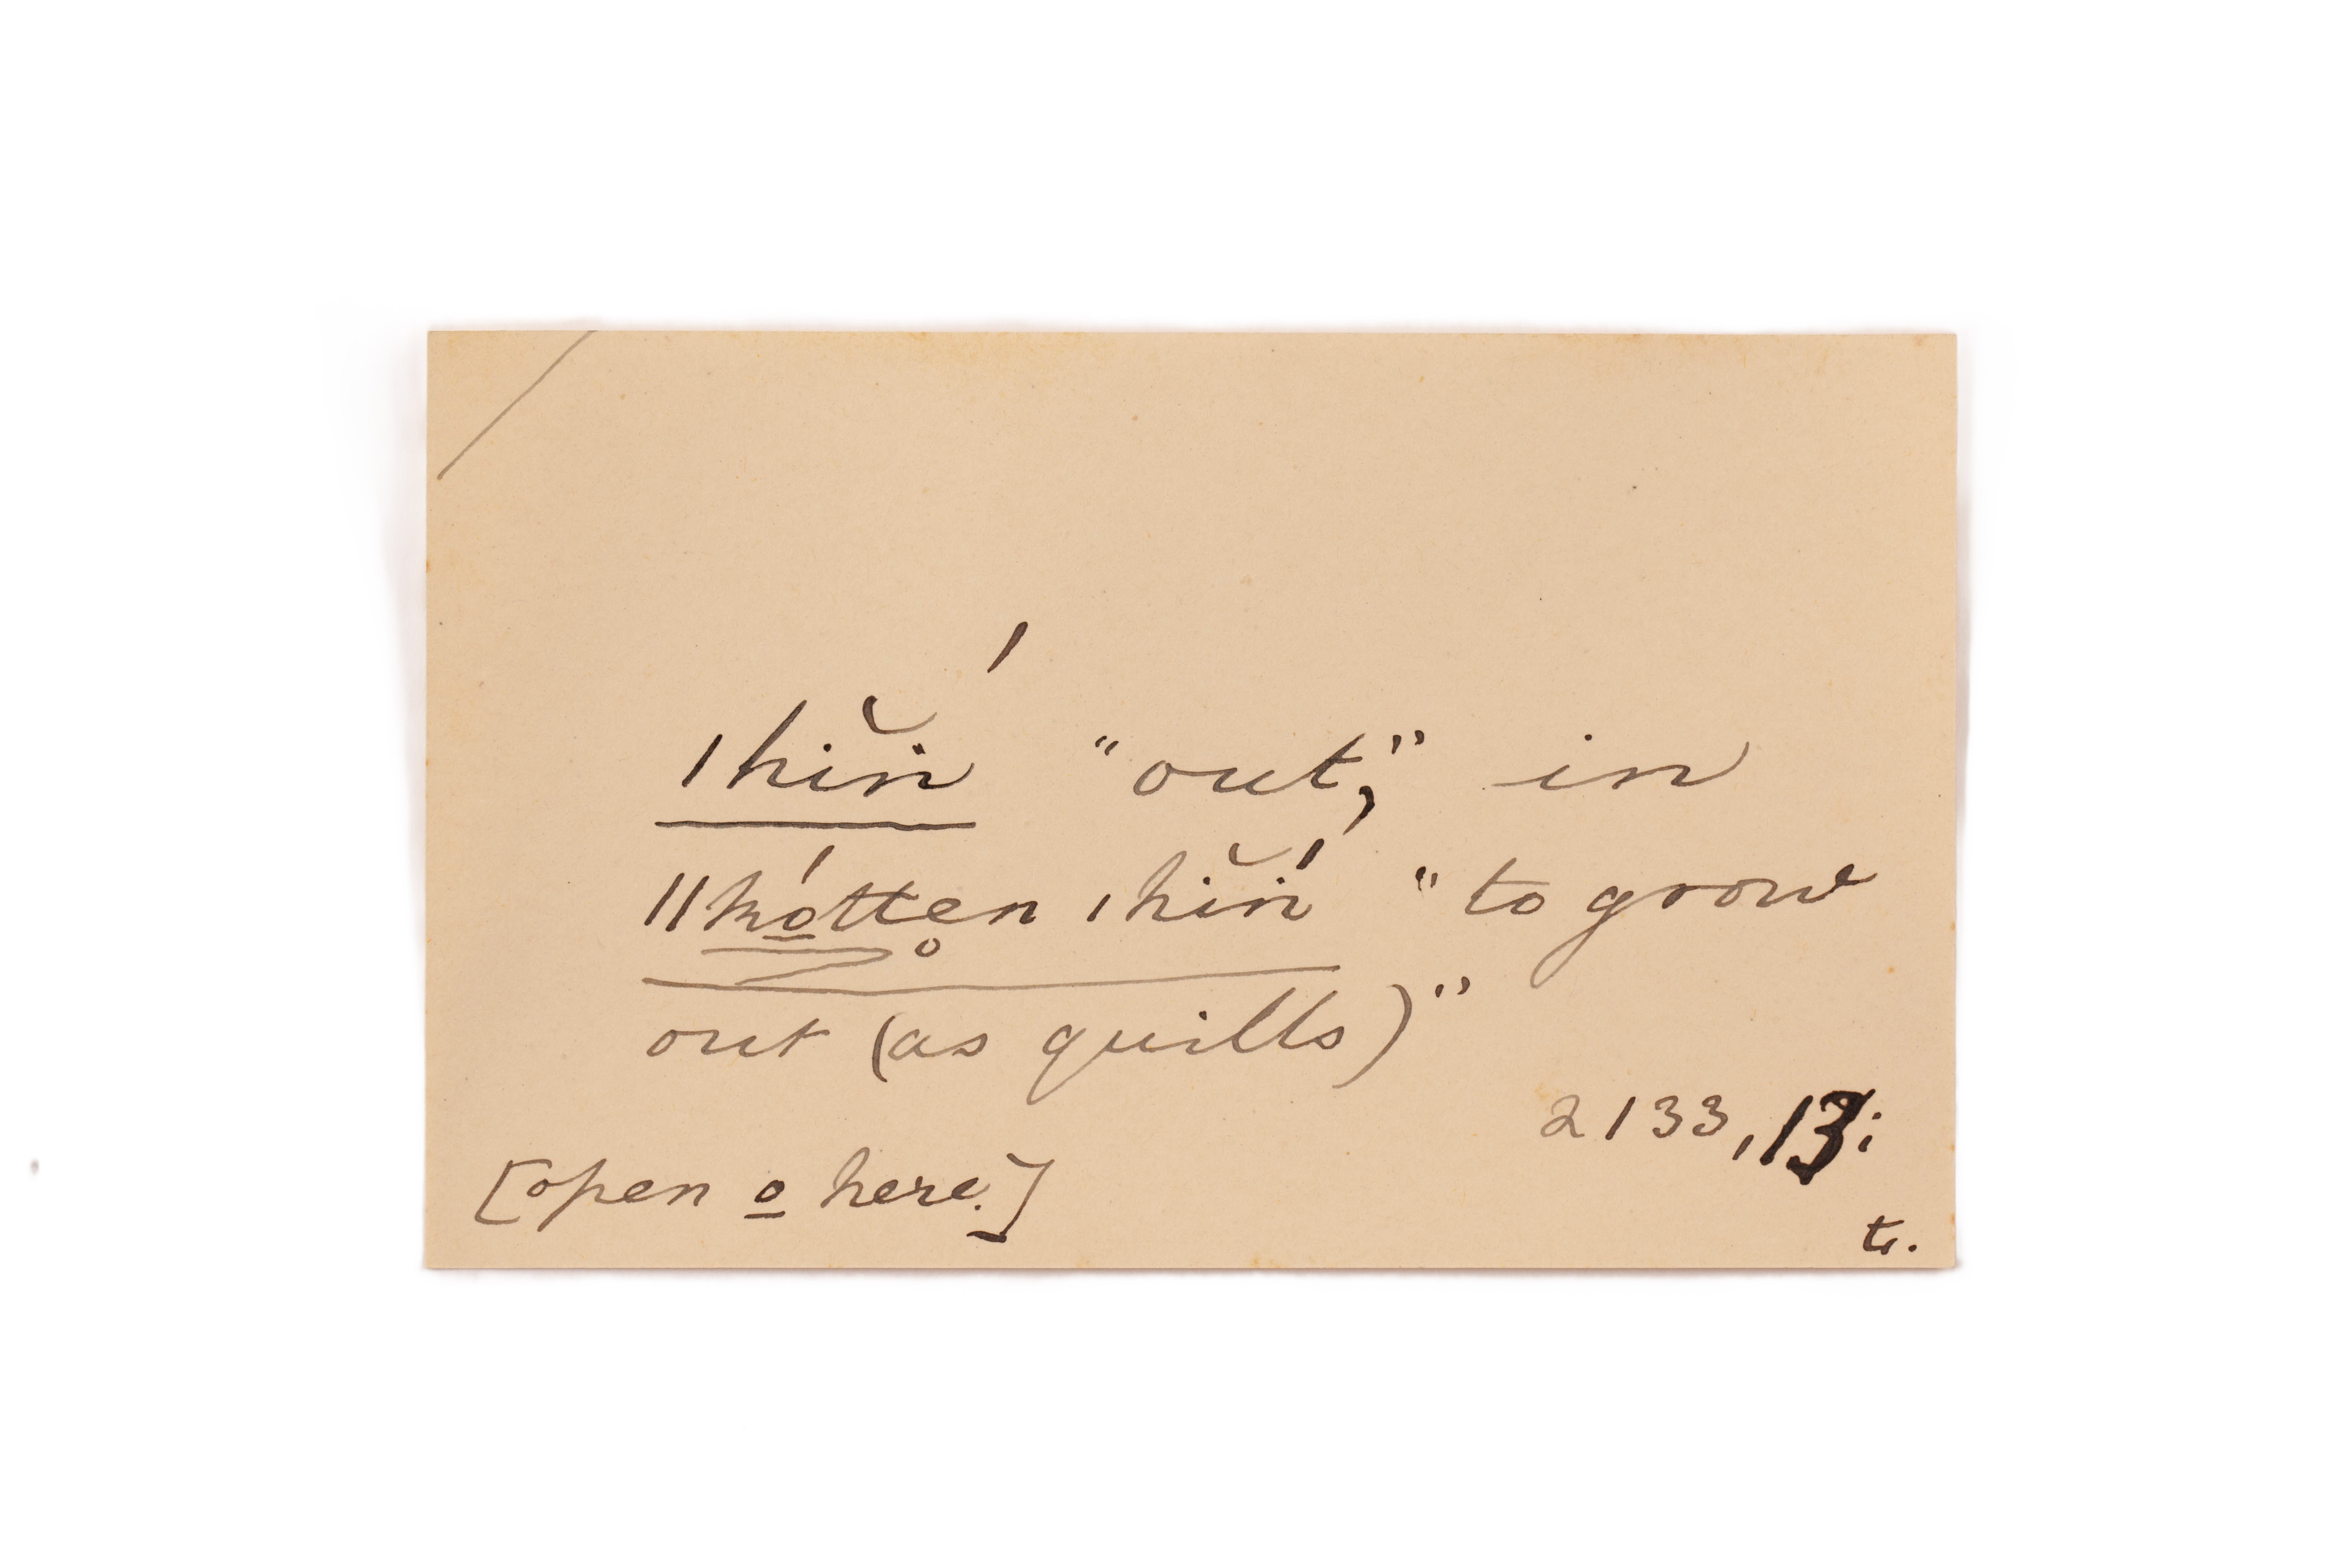 ǀhĭṅ́ “out,” in
ǁkó̱tten̥ ǀhĭṅ́ “to grow
out (as quills)”
2133, 13;
[open o̱ here.]
tr.